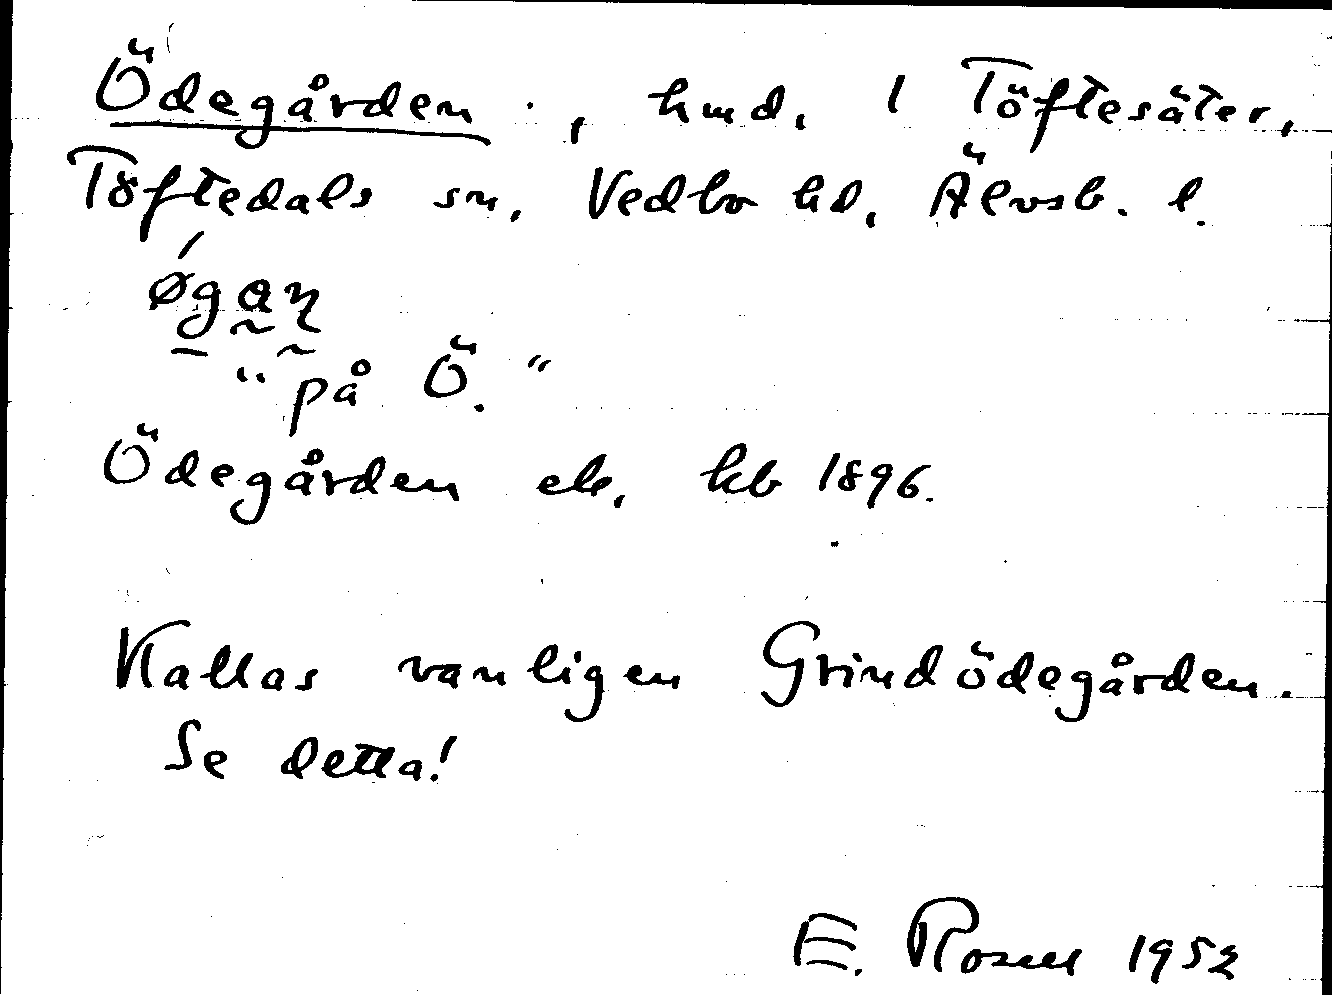 Ödegården, hmd, 1 Töftesäter,
Töftedals sn, Vedbo hd, Älvsb. l.
øgan
"på Ö."
Ödegården ek, kb 1896.
Kallas vanligen Grindödegården.
Se detta!
E. Rosell 1952